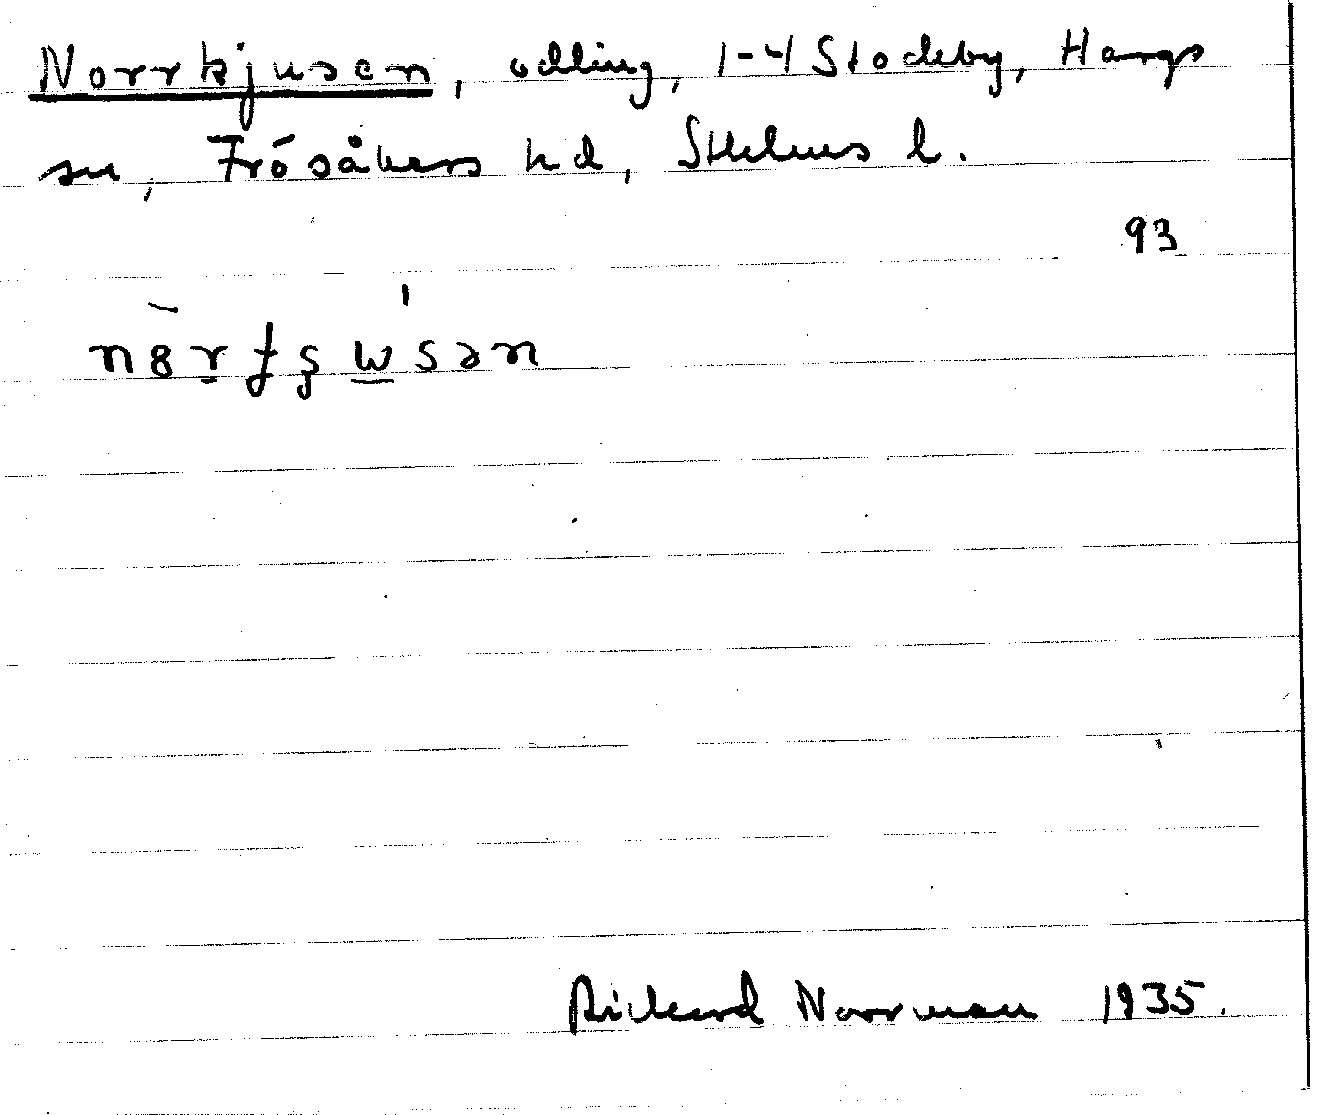 Norrkjusen, odling, 1-4 Stockby, Hargs
sn, Frösåkers hd, Sthlms l.
93
Rickard Norrman 1935.